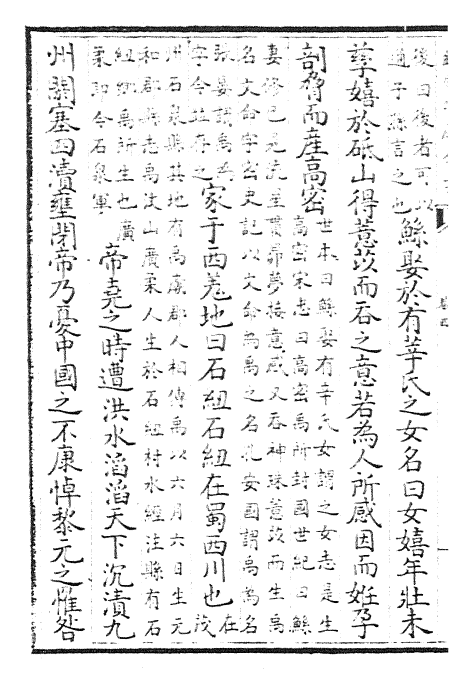 後曰後者可以
適子孫言之也
鯀娶於有莘氏之女名曰女嬉年壯未
孳嬉於砥山得薏苡而吞之意若為人所感因而姙孕
剖脅而産高密
世本曰鯀娶有辛氏女謂之女志是生
高密宋志曰高密禹所封國世紀曰鯀
妻修已見流星貫昴夢接意感又吞神珠薏苡而生禹
名文命字密史記以文命為禹之名孔安國謂禹為名
張晏謂禹為
字今並存之
家于西羌地曰石紐石紐在蜀西川也
在茂
州石泉縣其地有禹廟郡人相傳禹以六月六日生元
和郡縣志禹汶山廣柔人生於石紐村水經注縣有石
紐鄉禹所生也廣
柔即今石泉軍
帝堯之時遭洪水滔滔天下沉漬九
州閼塞四瀆壅閉帝乃憂中國之不康悼黎元之罹咎